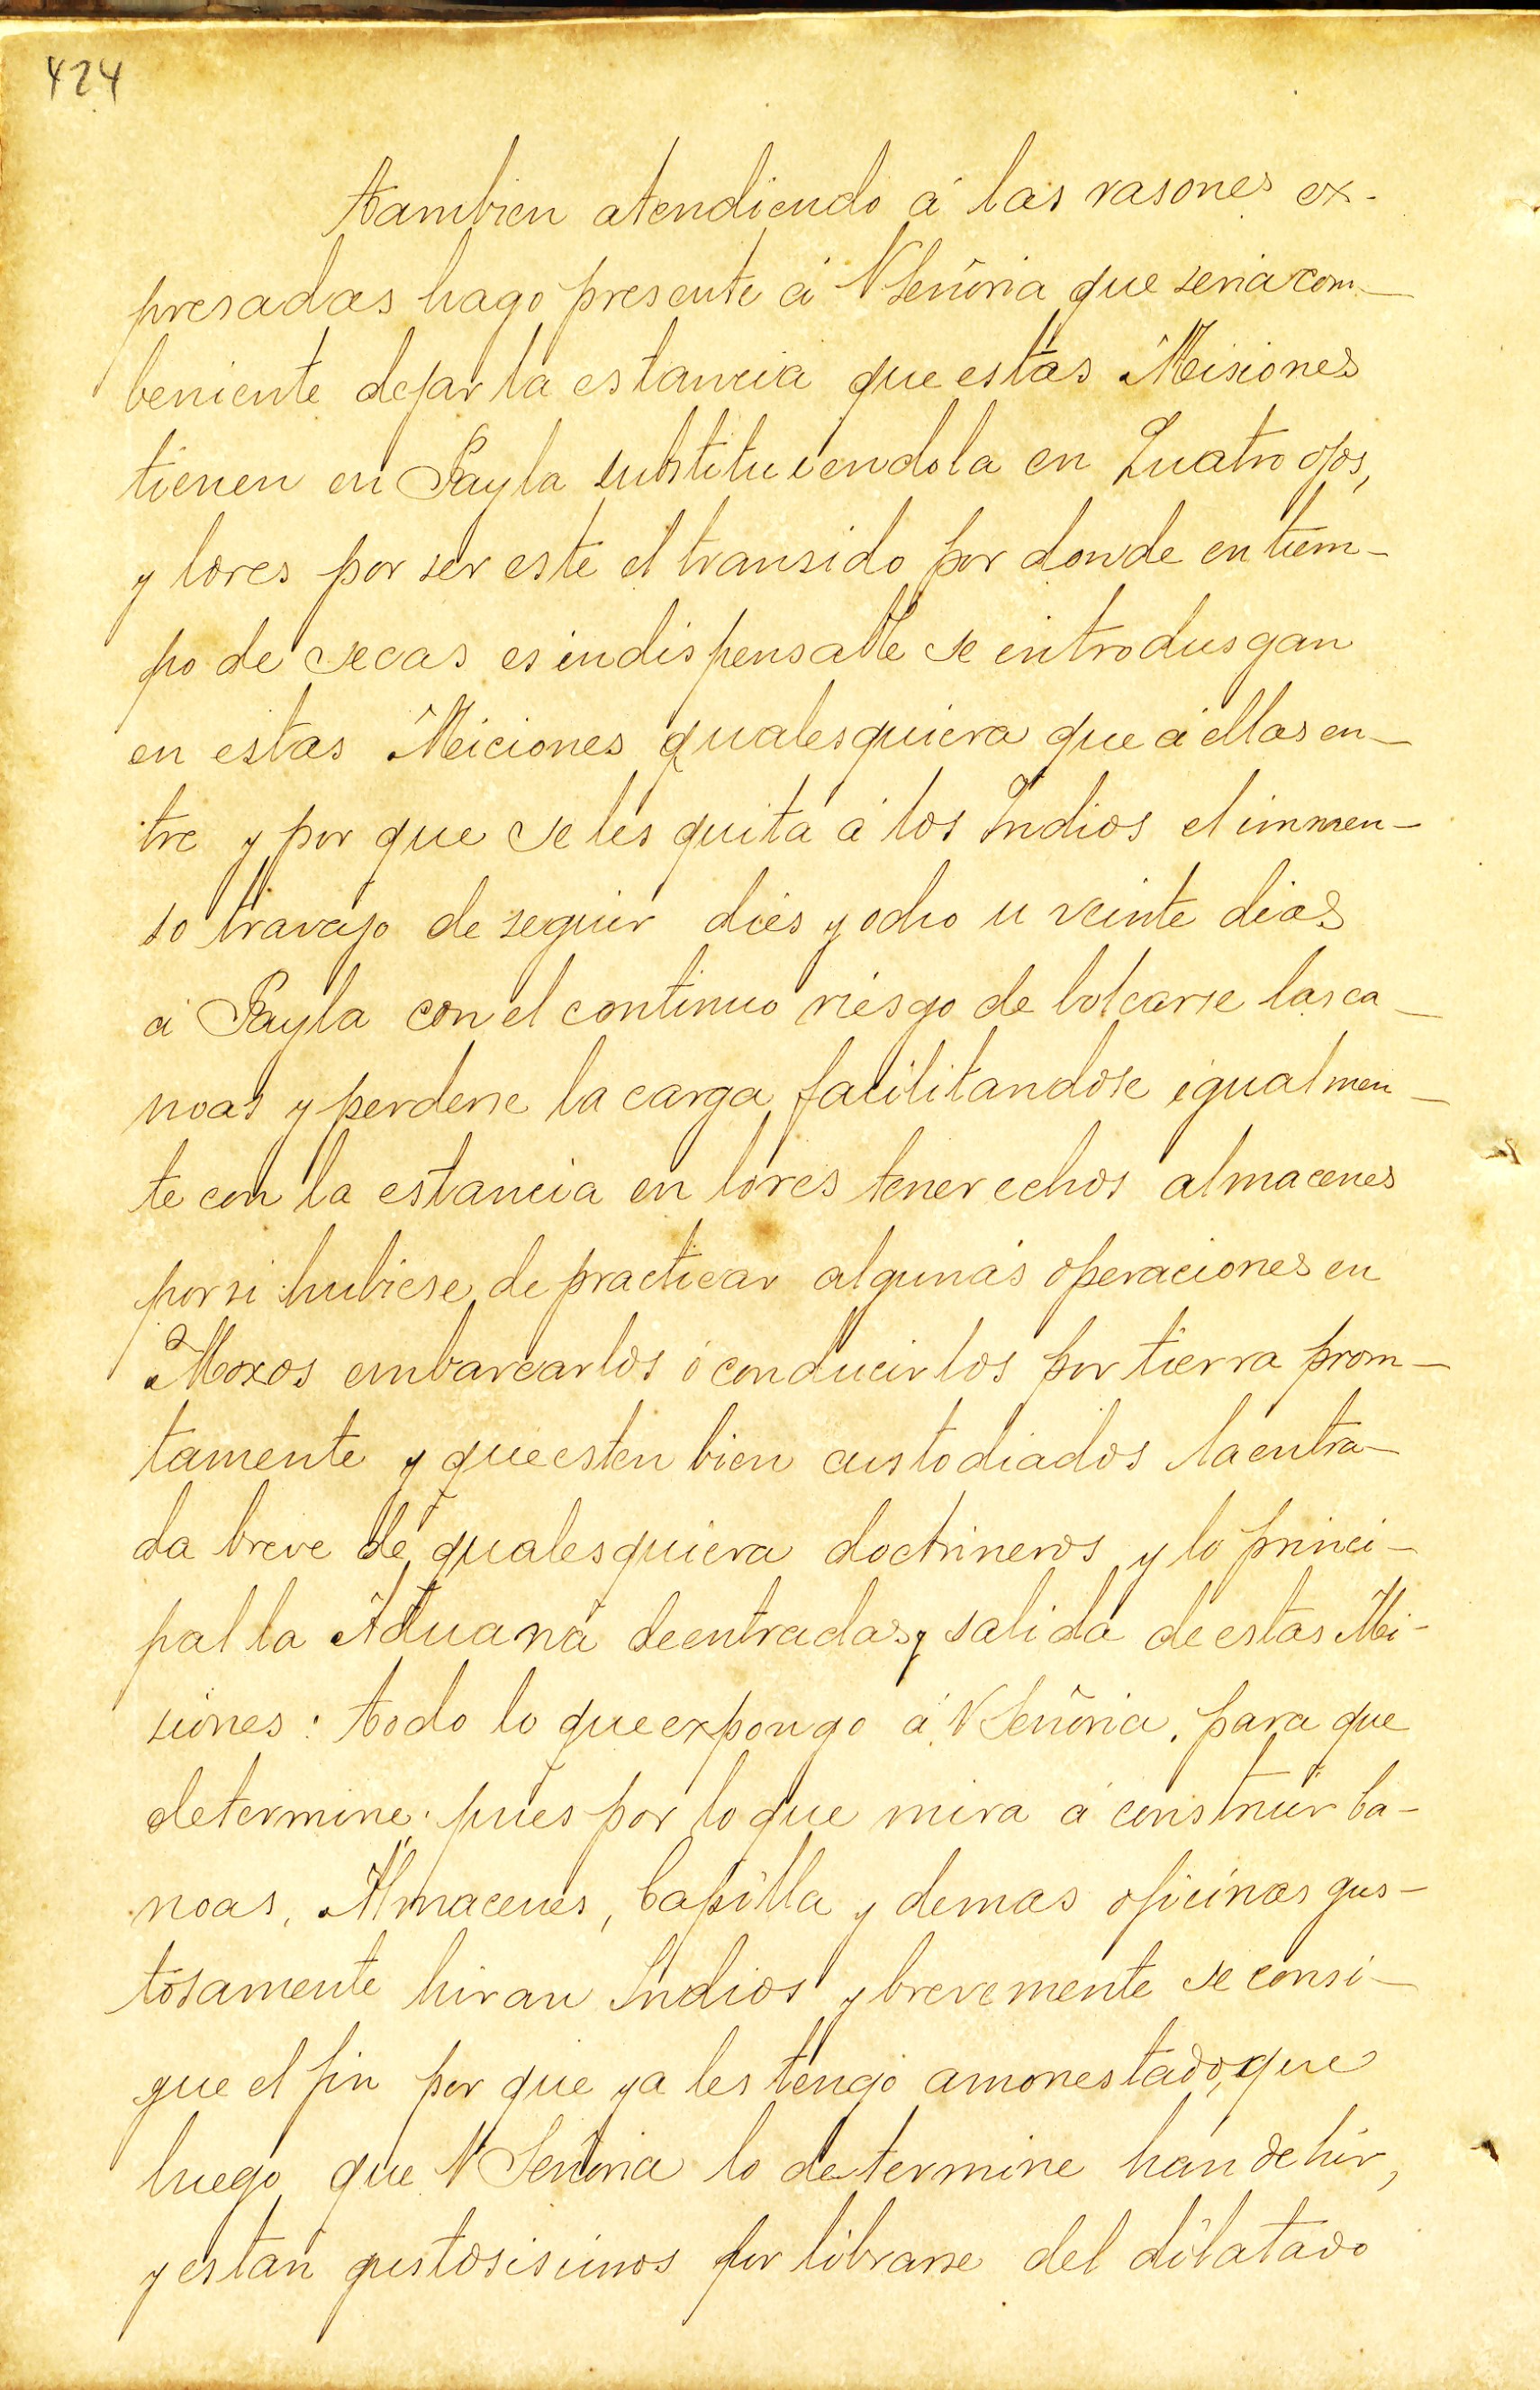 424
tambien atendiendo á las rasones ex-
presadas hago presente á VSeñoria que seria com-
beniente dejar la estancia que estas Misiones
tienen en Payla substituiendola en Quatro ojos,
y lores por ser este el transido por donde en tiem-
po de secas es indispensable se introdusgan
en estas Miciones qualesquiera que á ellas en-
tre y por que se les quita á los Indios el inmen-
so travajo de seguir dies y ocho u veinte dias
á Payla con el continuo riesgo de bolcarse las ca-
noas y perderse la carga, facilitandose igualmen-
te con la estancia en lores tener echos almacenes
por si hubiese de practicar algunas operaciones en
Moxos embarcarlos ó conducirlos por tierra prom-
tamente y que esten bien custodiados la entra-
da breve de qualesquiera doctrineros y lo princi-
pal la Aduana de entradas y salida de estas Mi-
siones: todo lo que expongo á VSeñoria, para que
determine. pues por lo que mira á construir Ca-
noas, Almacenes, Capilla y demas oficinas gus-
tosamente hiran Indios y brevemente se consi-
gue el fin por que ya les tengo amonestado, que
luego que VSeñoria lo determine han de hir,
y estan gustosisimos por librarse del dilatado